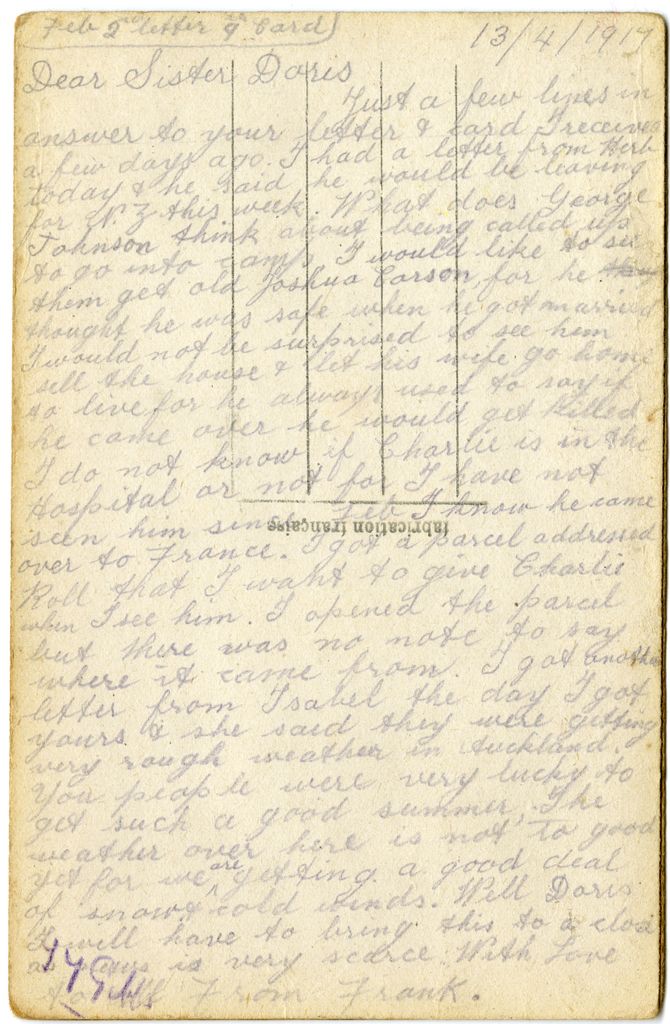 Feb 2nd letter 9th Card
13/4/1917
Dear Sister Doris
Just a few lines in
answer to your letter & card I received
a few days ago. I had a letter from Herb
today & he said he would be leaving
for N.Z this week. What does George
Johnson think about being called up
to go into camp I would like to see
them get old Joshua Carson, for he
thought he was safe when he got married
I would not be surprised to see him
sell the house & let his wife go home
to live for he always used to say if
he came over he would get killed
I do not know if Charlie is in the
Hospital or not for I have not
seen him since Feb I know he came
over to France. I got a parcel addressed
Roll that I want to give Charlie
when I see him. I opened the parcel
but there was no note to say
where it came from. I got another
letter from Isabel the day I got
yours & she said they were getting
very rough weather in Auckland.
You people were very lucky to
get such a good summer. The
weather over here is not to good
yet for we are getting a good deal
of snow & cold winds. Well Doris
I will have to bring this to a close
as news is very scarce With Love
to all From Frank.
fabrication française